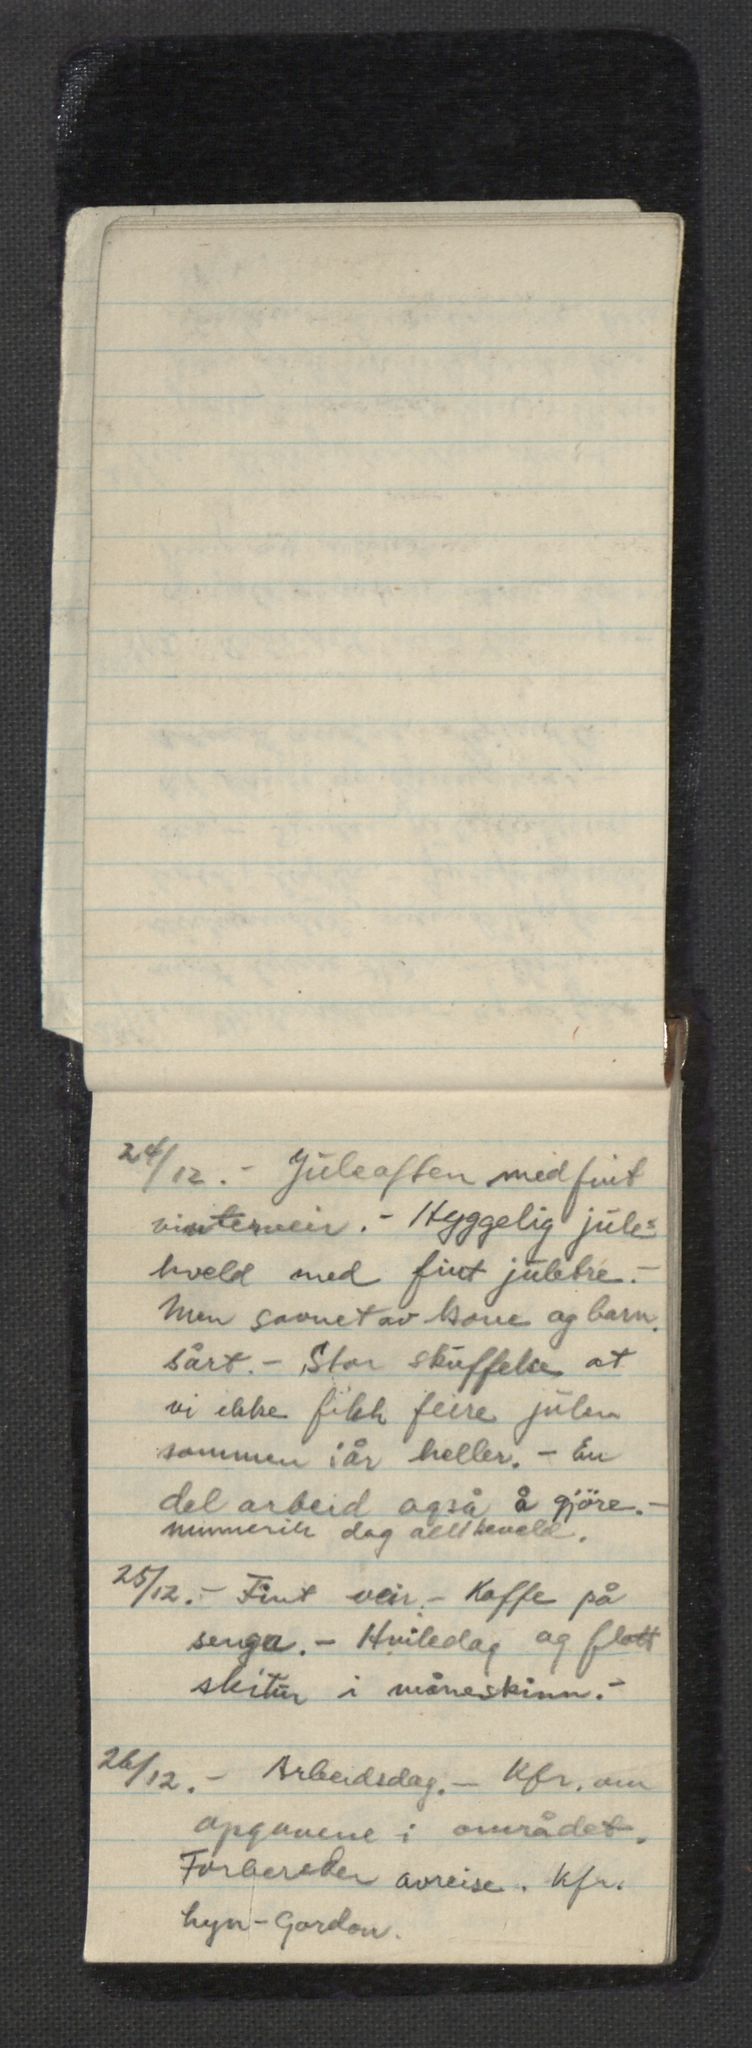 24/12. - Juleaften med fint
vinterveir. - Hyggelig jule=
kveld med fint juletre. -
Men savnet av kone og barn.
sårt. - Stor skuffelse at
vi ikke fikk feire julen
sammen i år heller. - En
del arbeid også å gjöre. -
dag
25/12. - Fint veir. - Kaffe på
senga. - Hviledag og flott
skitur i måneskinn. -
26/12. - Arbeidsdag. - Kfr. om
opgavene i området.
Forbereder avreise. Kfr.
Gordon.